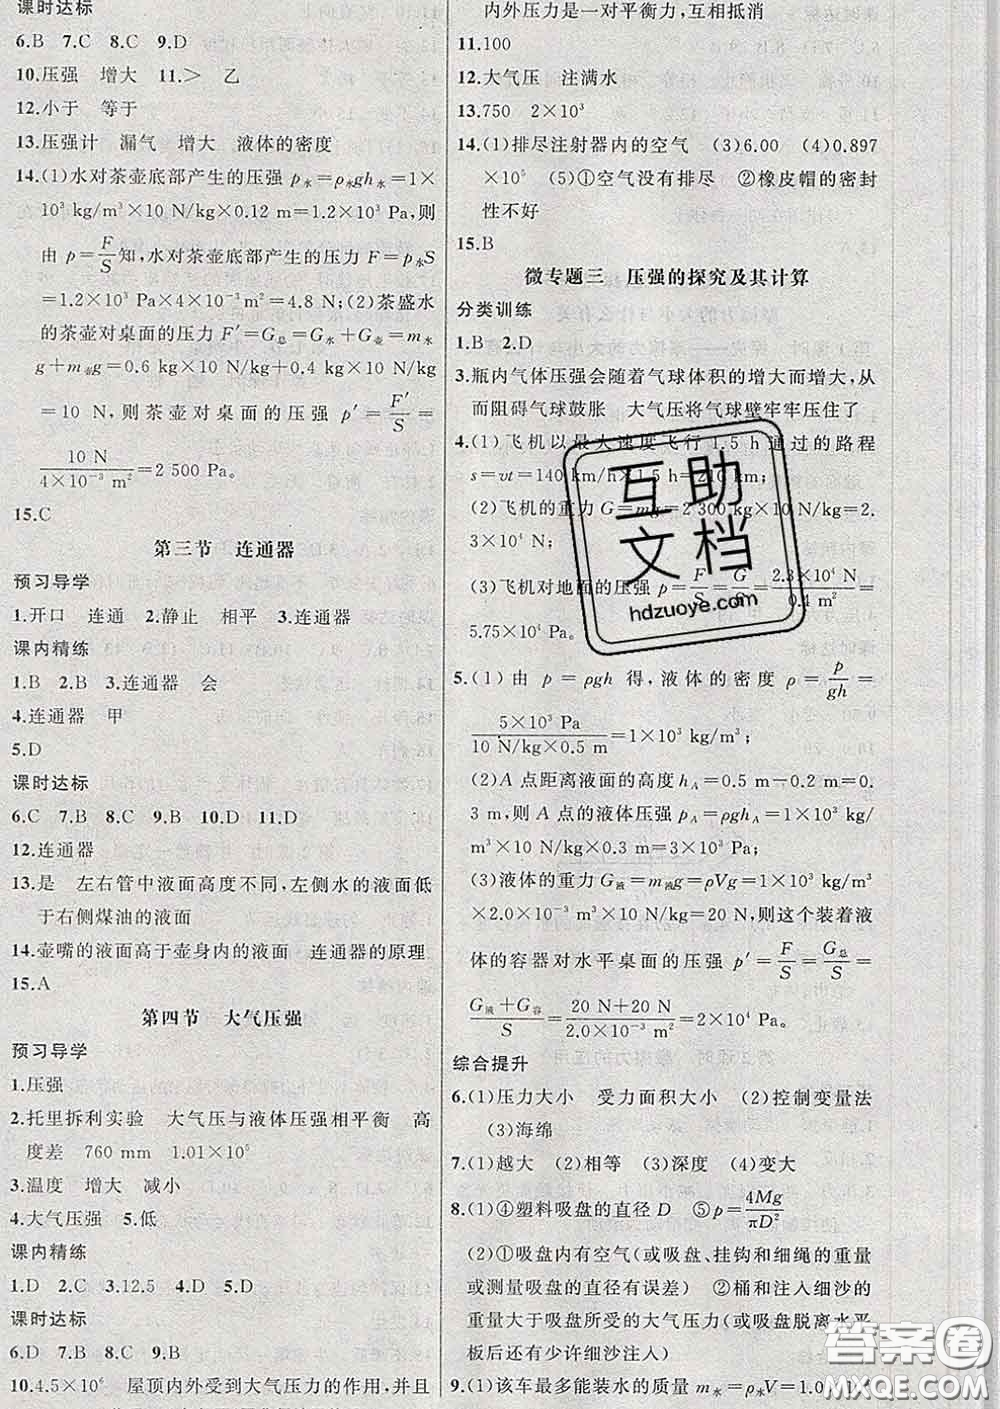 课时达标
6.B 7.C 8.C 9.D
10.压强 增大 11.> 乙
12.小于 等于
13.压强计 漏气 增大 液体的密度
14.(1)水对茶壶底部产生的压强 p水=ρ水gh水=1×
10³ kg/m³×10 N/kg×0.12 m=1.2×10³ Pa,则
由 p=F/S知,水对茶壶底部产生的压力 F=p水S
=1.2×10³ Pa×4×10⁻³ m²=4.8 N;(2)茶盛水
的茶壶对桌面的压力 F′=G总=G水+G壶=m水
g+m壶g=0.6 kg×10 N/kg+0.4 kg×10 N/kg
=10 N,则茶壶对桌面的压强 p′=F′/S=
10 N/4×10⁻³ m²=2 500 Pa。
15.C
第三节 连通器
预习导学
1.开口 连通 2.静止 相平 3.连通器
课内精练
1.B 2.B 3.连通器 会
4.连通器 甲
5.D
课时达标
6.C 7.B 8.C 9.B 10.D 11.D
12.连通器
13.是 左右管中液面高度不同,左侧水的液面低
于右侧煤油的液面
14.壶嘴的液面高于壶身内的液面 连通器的原理
15.A
第四节 大气压强
预习导学
1.压强
2.托里拆利实验 大气压与液体压强相平衡 高
度差 760 mm 1.01×10⁵
3.温度 增大 减小
4.大气压强 5.低
课内精练
1.D 2.C 3.12.5 4.D 5.D
课时达标
6.D 7.B 8.C 9.B
10.4.5×10⁶ 屋顶内外受到大气压力的作用,并且
内外压力是一对平衡力,互相抵消
11.100
12.大气压 注满水
13.750 2×10³
14.(1)排尽注射器内的空气 (3)6.00 (4)0.897
×10⁵ (5)①空气没有排尽 ②橡皮帽的密封
性不好
15.B
微专题三 压强的探究及其计算
分类训练
1.B 2.D
3.瓶内气体压强会随着气球体积的增大而增大,从
而阻碍气球鼓胀 大气压将气球壁牢牢压住了
4.(1)飞机以最大速度飞行 1.5 h 通过的路程
s=vt=140 km/h×1.5 h=210 km;
(2)飞机的重力 G=mg=2 300 kg×10 N/kg=2.
3×10⁴ N;
(3)飞机对地面的压强 p=F/S=G/S=2.3×10⁴ N/0.4 m²=
5.75×10⁴ Pa。
5.(1)由 p=ρgh 得,液体的密度 ρ=p/gh=
5×10³ Pa/10 N/kg×0.5 m=1×10³ kg/m³;
(2)A 点距离液面的高度 hA=0.5 m-0.2 m=0.
3 m,则 A 点的液体压强 pA=ρghA=1×10³ kg/
m³×10 N/kg×0.3 m=3×10³ Pa;
(3)液体的重力 G液=m液g=ρVg=1×10³ kg/m³
×2.0×10⁻³ m³×10 N/kg=20 N,则这个装着液
体的容器对水平桌面的压强 p′=F/S=G总/S=
G液+G容/S=20 N+20 N/2.0×10⁻³ m²=2×10⁴ Pa。
综合提升
6.(1)压力大小 受力面积大小 (2)控制变量法
(3)海绵
7.(1)越大 (2)相等 (3)深度 (4)变大
8.(1)④塑料吸盘的直径 D ⑤p=4Mg/πD²
(2)①吸盘内有空气(或吸盘、挂钩和细绳的重量
或测量吸盘的直径有误差) ②桶和注入细沙的
重量大于吸盘所受的大气压力(或吸盘脱离水平
板后还有少许细沙注入)
9.(1)该车最多能装水的质量 m水=ρ水V=1.0
互助文档
hdzuoye.com
答案圈
MXQE.COM